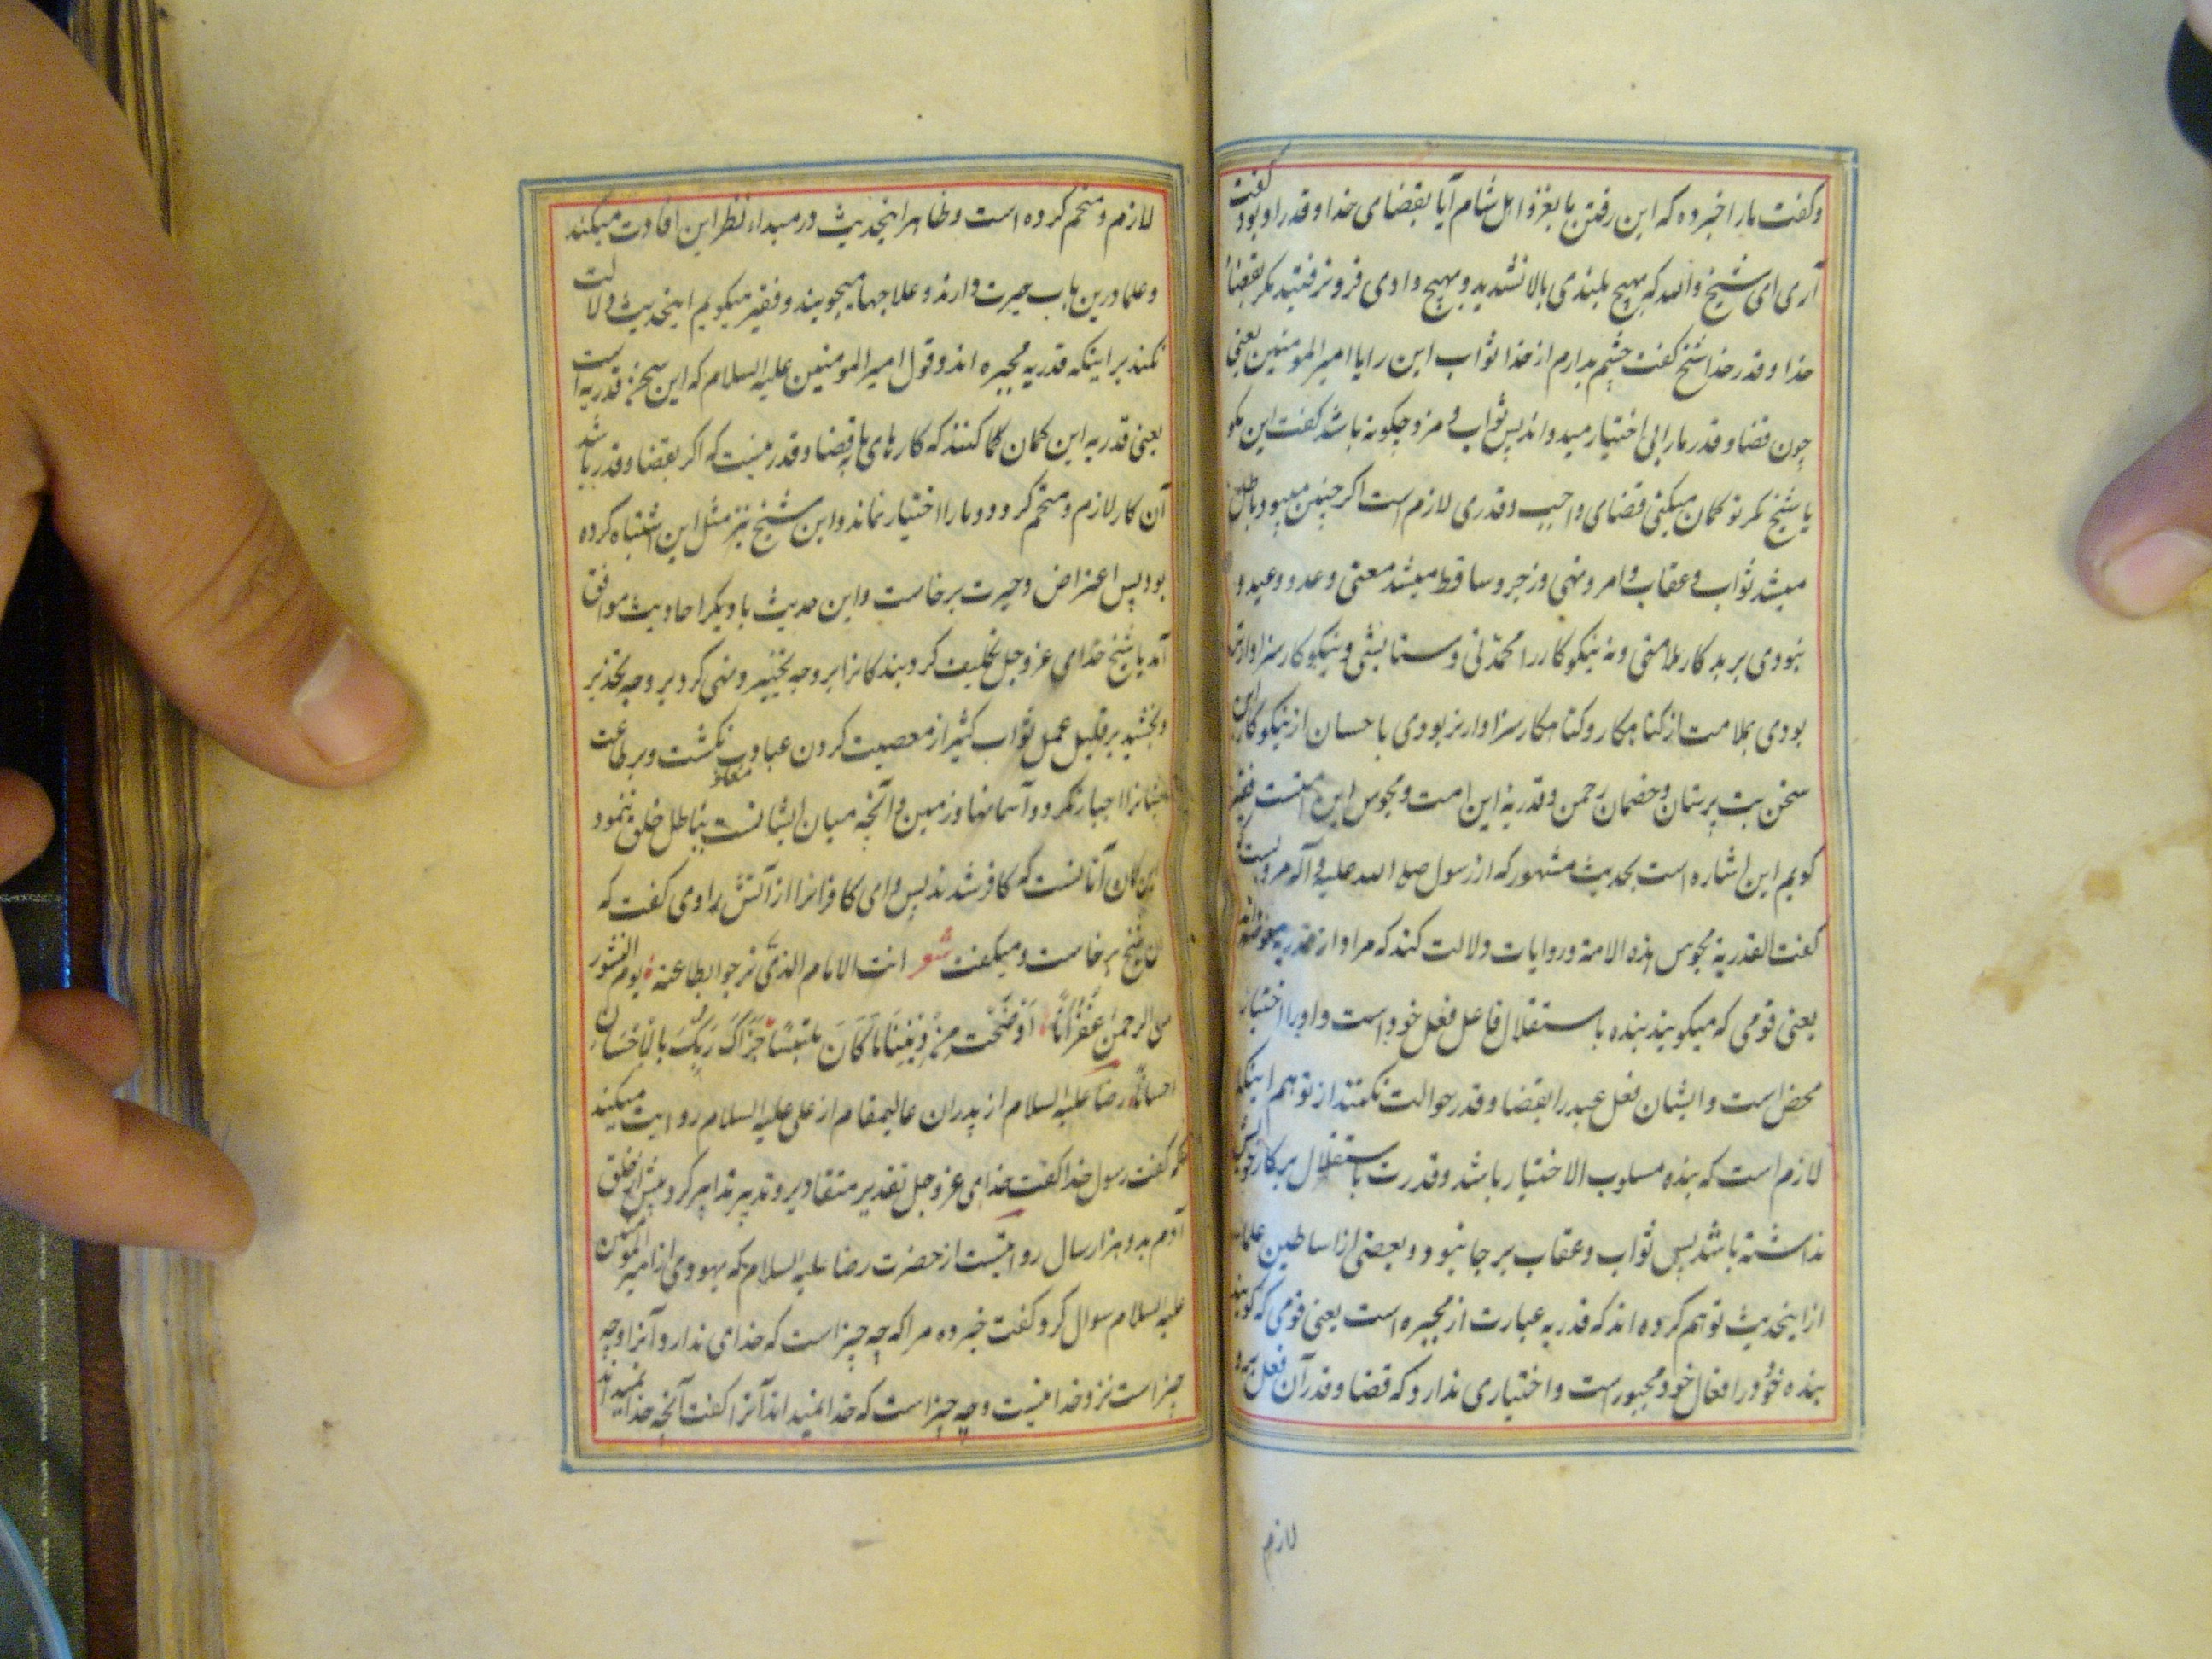 و کفت ما را خبر ده که این رفتن ما بغزو اهل شام آیا بقضای خدا و قدر او بود کفت
آری ای شیخ والله که بهیچ بلندی بالا نشدید و بهیچ وادی فرو نرفتید مکر بقضاء
خدا و قدر خدا شیخ کفت چشم بدارم از خدا ثواب این را یا امیرالمومنین یعنی
چون قضا و قدر ما را بی اختیار میدواند پس ثواب و مزد چکونه باشد کفت این مکو
یا شیخ مکر تو کمان میکنی قضای واجب و قدری لازم است اکر چنین میبود باطل
میشد ثواب و عقاب و امر و نهی و زجر و ساقط میشد معنی وعد و وعید و
نبودی بر بدکار ملامتی و نه نیکوکار را محمدتی و ستایشی و نیکوکار سزاوارتر
بودی بملامت از کناهکار و کناهکار سزاوارتر بودی باحسان از نیکوکار این
سخن بت پرستان و خصمان رحمن و قدریهٔ این امت و مجوس این امتست فقیر
کویم این اشاره است بحدیث مشهور که از رسول صلی الله علیه و آله مرویست که
کفت القدریة مجوس هذه الامة و روایات دلالت کند که مراد از قدریه مفوضه‌اند
یعنی قومی که میکویند بنده باستقلال فاعل فعل خود است و او را اختیار
محض است و ایشان فعل عبد را بقضا و قدر حوالت نکنند از توهم اینکه
لازم است که بنده مسلوب الاختیار باشد و قدرت باستقلال بر کار خویش
نداشته باشد پس ثواب و عقاب بر جا نبود و بعضی از اساطین علماء
از اینحدیث توهم کرده اند که قدریه عبارت از مجبره است یعنی قومی که کویند
بنده خود در افعال خود مجبور است و اختیاری ندارد که قضا و قدر آن فعل بر او
لازم
لازم و متحتم کرده است و ظاهر اینحدیث در مبداء نظر این افادت میکند
و علما درین باب حیرت دارند و علاجها میجویند و فقیر میکویم اینحدیث دلالت
نکند بر اینکه قدریه مجبره اند و قول امیرالمومنین علیه السلام که این سخن قدریه است
یعنی قدریه این کمان کنند که کارهای ما بقضا و قدر نیست که اکر بقضا و قدر باشد
آن کار لازم و متحتم کردد و ما را اختیار نماند و این شیخ نیز مثل این اشتباه کرده
بود پس اعتراض و حیرت برخاست و این حدیث با دیکر احادیث موافق
آمد یا شیخ خدای عز و جل تکلیف کرد بندکانرا بر وجه تخییر و نهی کرد بر وجه تحذیر
و بخشید بر قلیل عمل ثواب کثیر از معصیت کردن عباد مغلوب نکشت و بر طاعت
اجبار نکرد و آسمانها و زمین و آنچه میان ایشانست بباطل خلق ننمود
این کمان آنانست که کافر شدند پس وای کافرانرا از آتش راوی کفت که
شیخ برخاست و میکفت شعر انت الامام الذی نرجو بطاعته یوم النشور
من الرحمن غفرانا اوضحت من دیننا ما کان ملتبسا جزاک ربک بالاحسان
احسانا رضا علیه السلام از پدران عالیمقام از علی علیه السلام روایت میکند
که کفت رسول خدا کفت خدای عز و جل تقدیر مقادیر و تدبیر تدابیر کرد پیش از خلق
آدم بدو هزار سال روایتست از حضرت رضا علیه السلام که یهودی از امیر المومنین
علیه السلام سوال کرد و کفت خبر ده مرا که چه چیز است که خدای ندارد آنرا و چه
چیز است نزد خدا نیست و چه چیز است که خدا نمیداند آنرا کفت آنچه خدا نمیداند